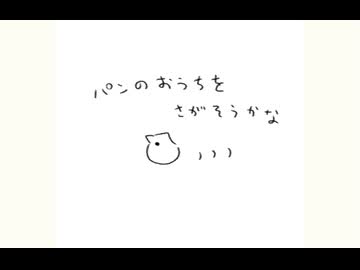 パンのおうちを
さがそうかな